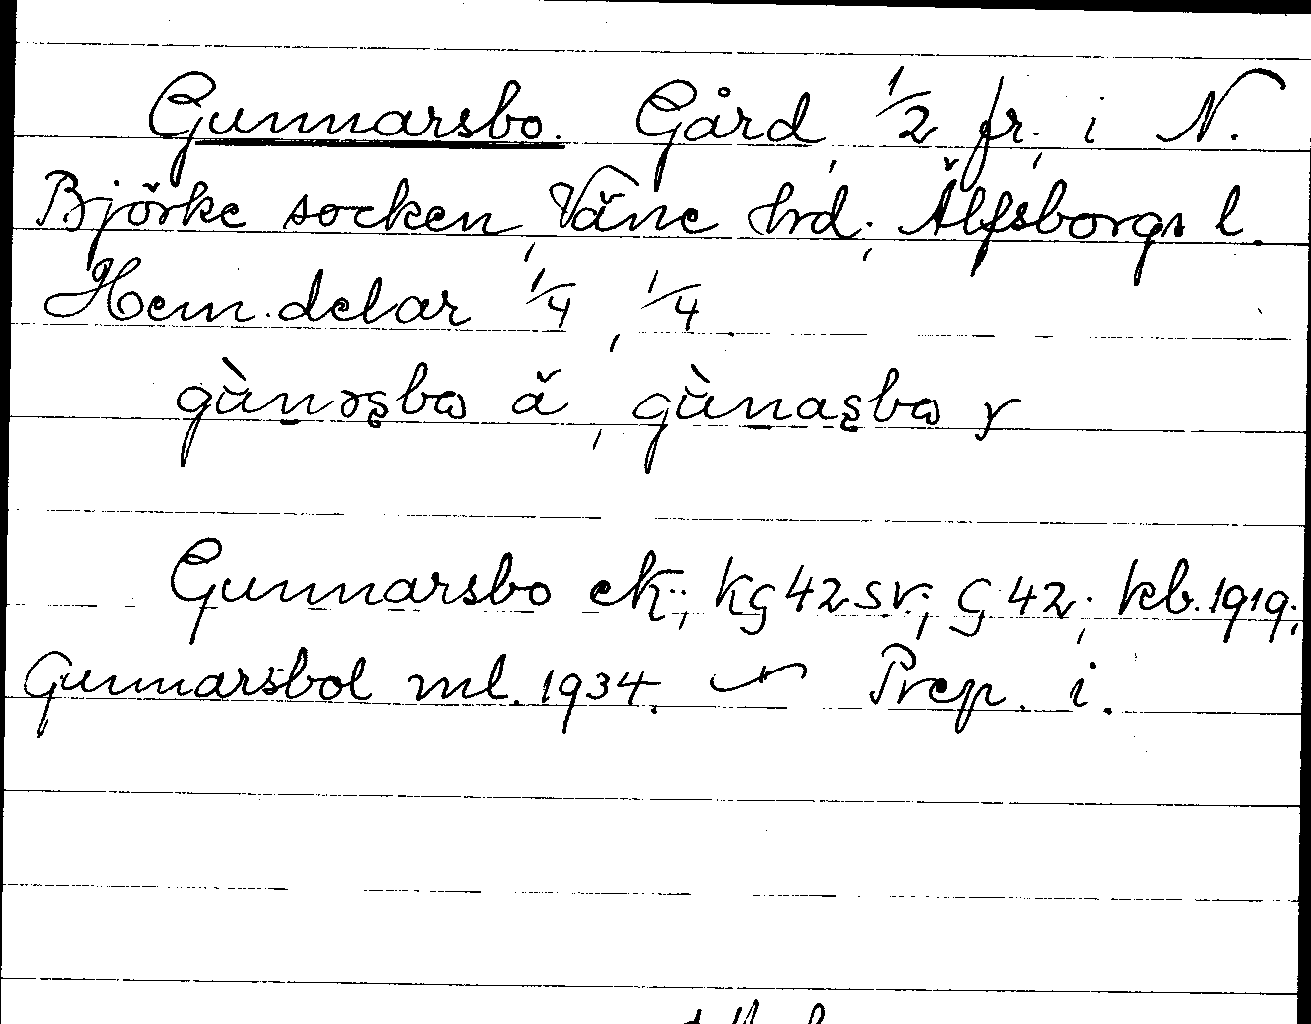 Gunnarsbo. Gård, 1/2 fr., i N.
Björke socken, Väne hrd, Älfsborgs l.
Hem.delar 1/4, 1/4.
gùnəʂbω ä, gùnaʂbω y
Gunnarsbo ek.; kg 42 sv; G 42; kb. 1919;
Gunnarsbol ml. 1934. ~ Prep. i.